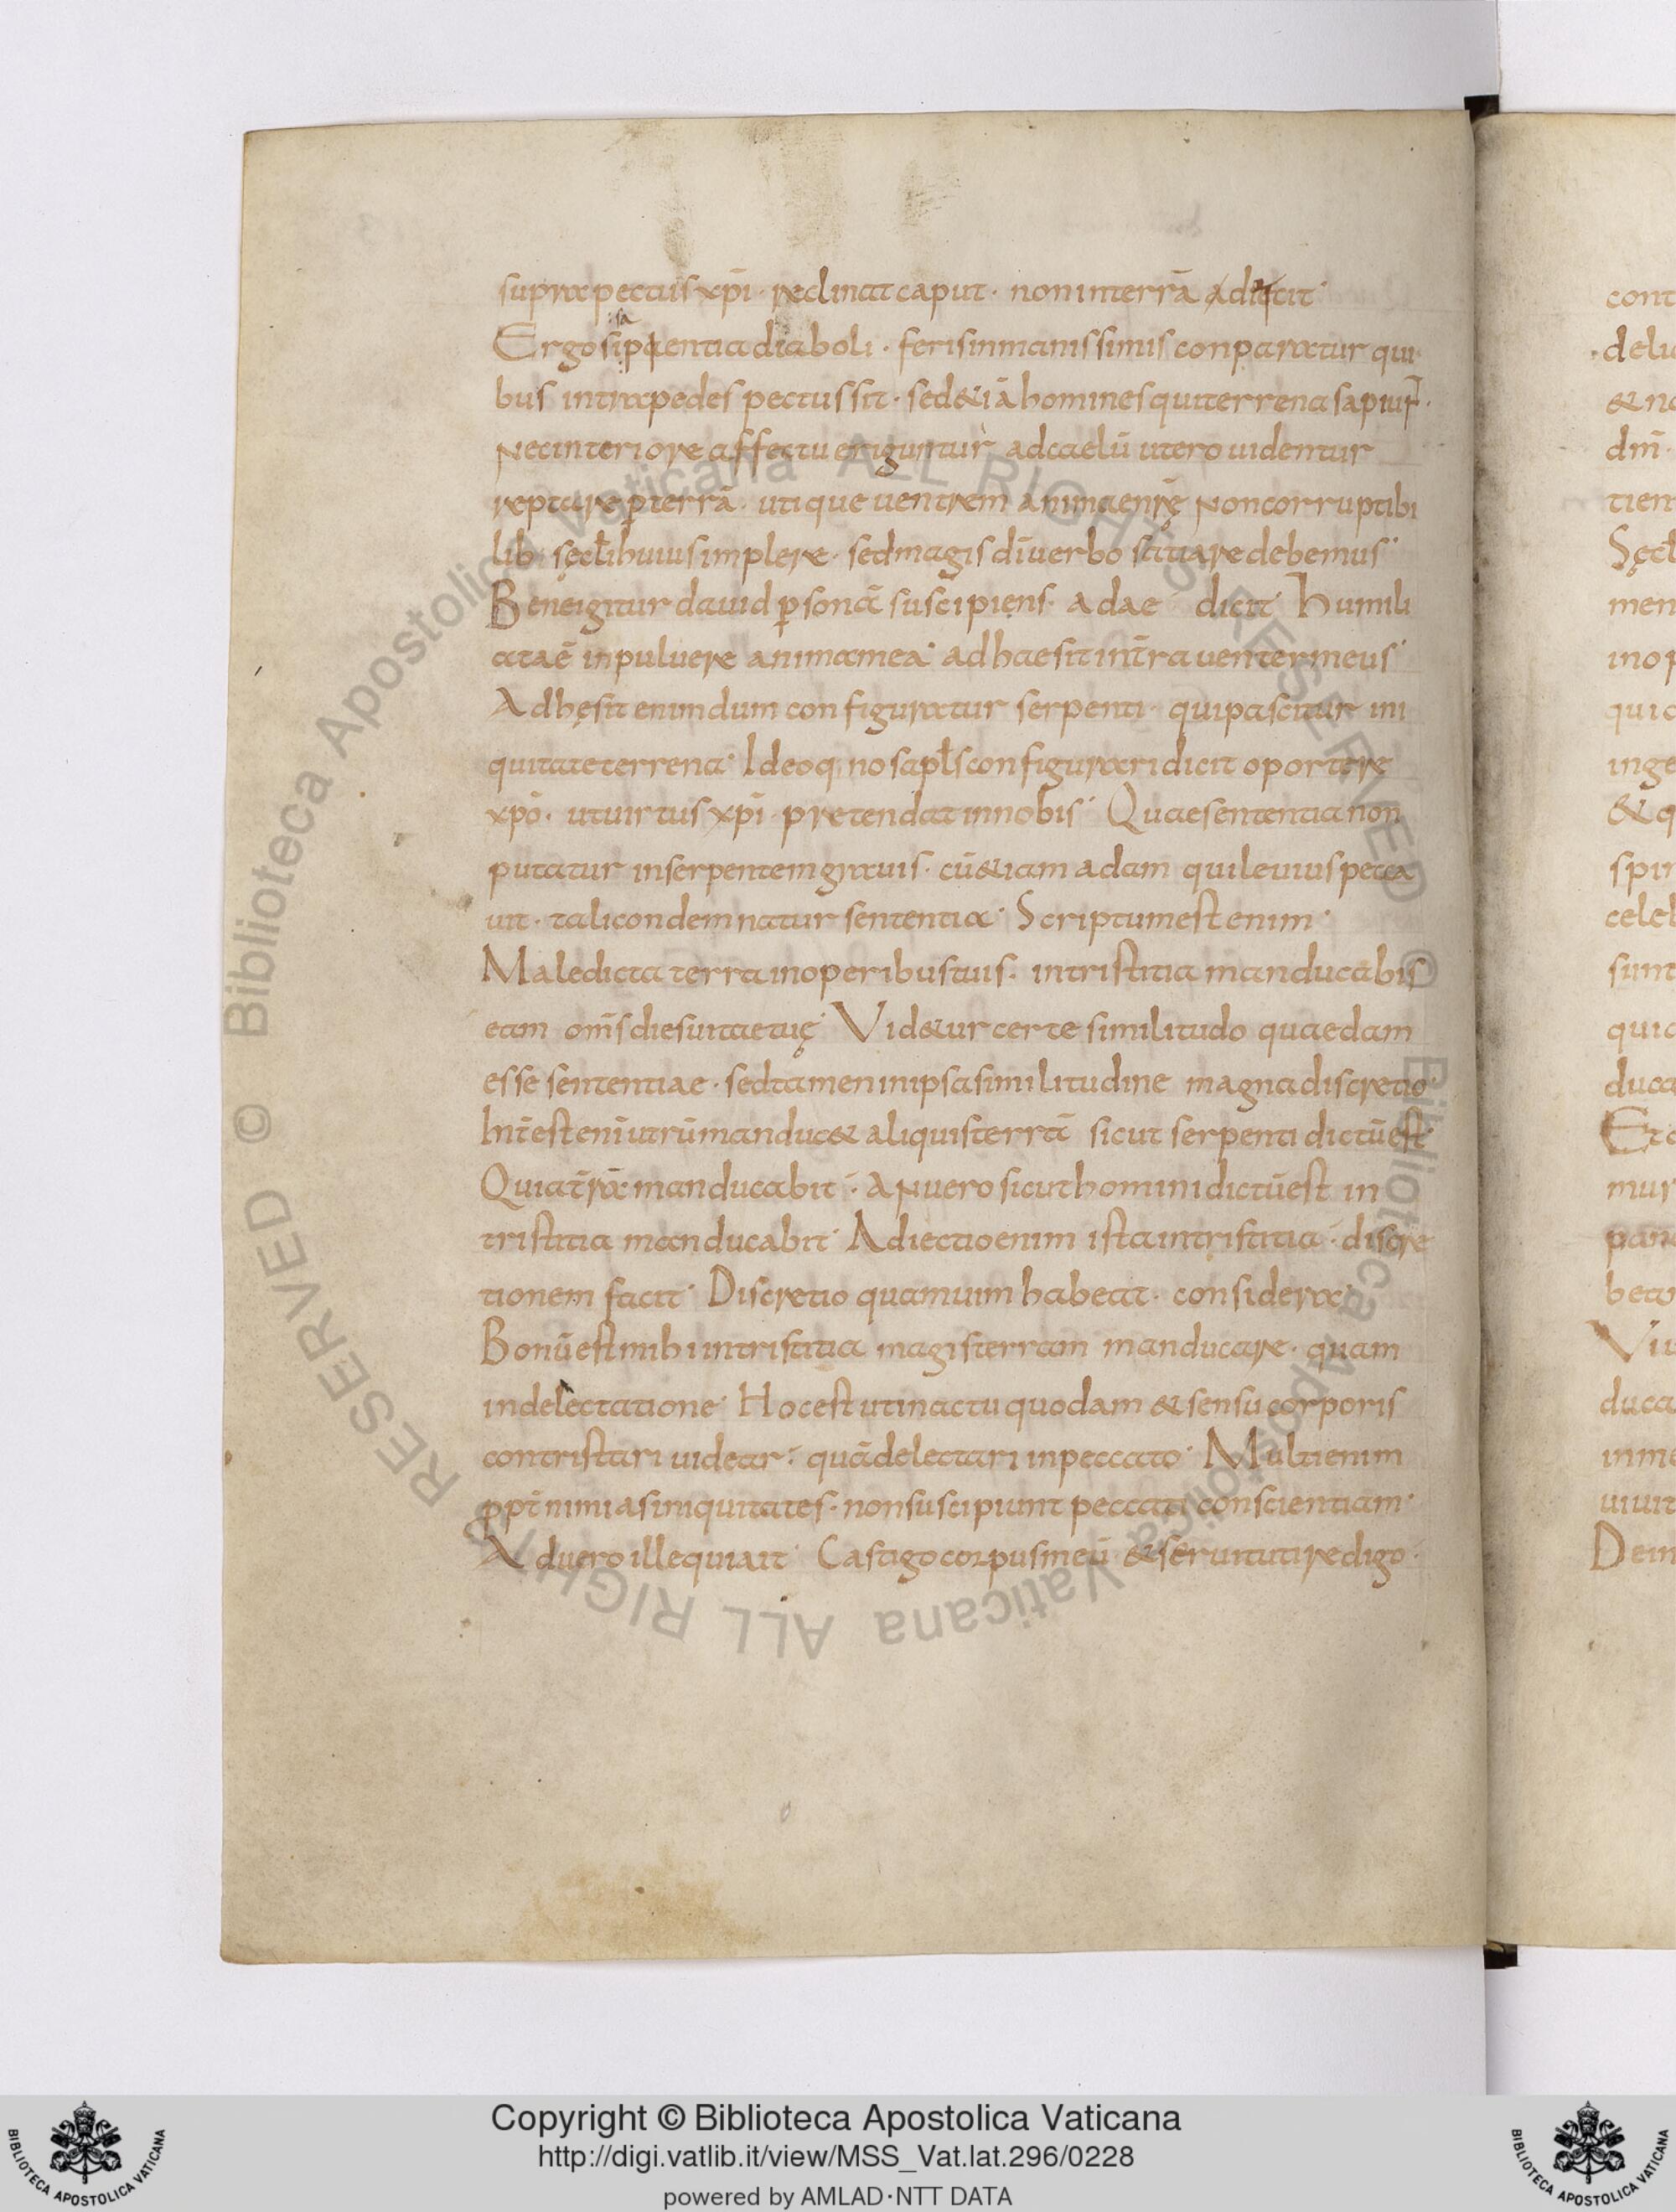 supra pectus xp̄i · reclinat caput · non in terrā adiecit ·
Ergo sipientia diaboli · feris inmanissimis conparatur qui
:sa
bus intra pedes pectus sit · sed & iā homines qui terrena sapiun̄t ·
Nec interiore affectu eriguntur ad caelū utero uidentur
reptare p̱ terrā · utique uentrem animae nr̄ę non corruptibi
lib· sęcl̄i huius implere · sed magis dī uerbo satiare debemus ·
Bene igitur dauid p̱sonā suscipiens · adae dicit humili
ata ē in puluere anima mea · adhaesit in t̄ra uenter meus ·
Adhęsit enim dum configuratur serpenti · qui pascitur ini
quitate terrena · Ideoq; nos apl̄s configurari dicit oportere
xp̄o · ut uirtus xp̄i pretendat in nobis · Quae sententia non
putatur in serpentem grauis · cū & iam adam qui leuius pecca
uit · tali condemnatur sententia · Scriptum est enim ·
Maledicta terra in operibus tuis · in tristitia manducabis
eam om̄s dies uitae tuę · Vid&ur certe similitudo quaedam
esse sententiae · sed tamen in ipsa similitudine magna discretio ·
Int̄est enī utrū manduc& aliquis terrā sicut serpenti dictū est ·
Quia t̄rā manducabit · An uero sicut homini dictū est in
tristitia manducabit · Adiectio enim ista in tristitia · discre
tionem facit · Discretio quam uim habeat · considera ·
Bonū est mihi in tristitia magis terram manducare · quam
in delectatione · Hoc est ut in actu quodam & sensu corporis
contristari uidear · quā delectari in peccato · Multi enim
ppt̄ nimias iniquitates · non suscipiunt peccati conscientiam ·
Ad uero ille qui ait · Castigo corpus meū & seruituti redigo ·
cont
&
dn̄i
tien
men
inop
inge
spir
sunt
duca
mur
Viu
duca
uiuit
Dein
© Biblioteca Apostolica Vaticana ALL RIGHTS RESERVED © Biblioteca Apostolica Vaticana ALL RIGHTS RESERVED
BIBLIOTECA APOSTOLICA VATICANA
Copyright © Biblioteca Apostolica Vaticana
http://digi.vatlib.it/view/MSS_Vat.lat.296/0228
powered by AMLAD·NTT DATA
BIBLIOTECA APOSTOLICA VATICANA